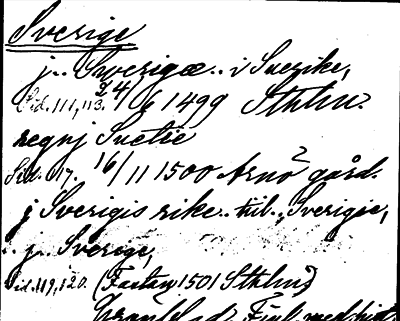 Sverige
j.. Swerigæ.. i Suerike,
Sid. 111, 113. 24/6 1499 Sthlm.
regnj Suetie
Sid. 117. 16/11 1500 Arnö gård.
j Sverigis rike.. till.. Sverige,
.. j.. Sverige,
Sid. 119, 120. (Fastan 1501 Sthlm)